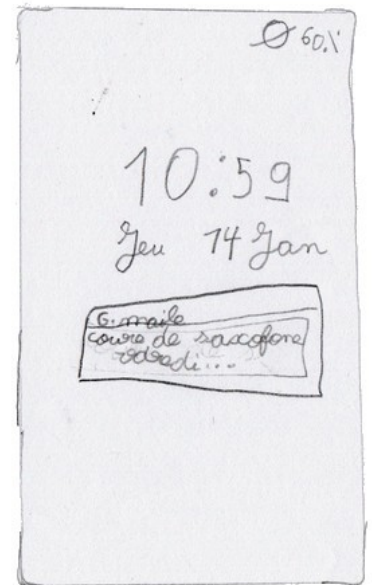 60%
10:59
Jeu 14 Jan
G. maile
cours de saxcofone
vdredi...